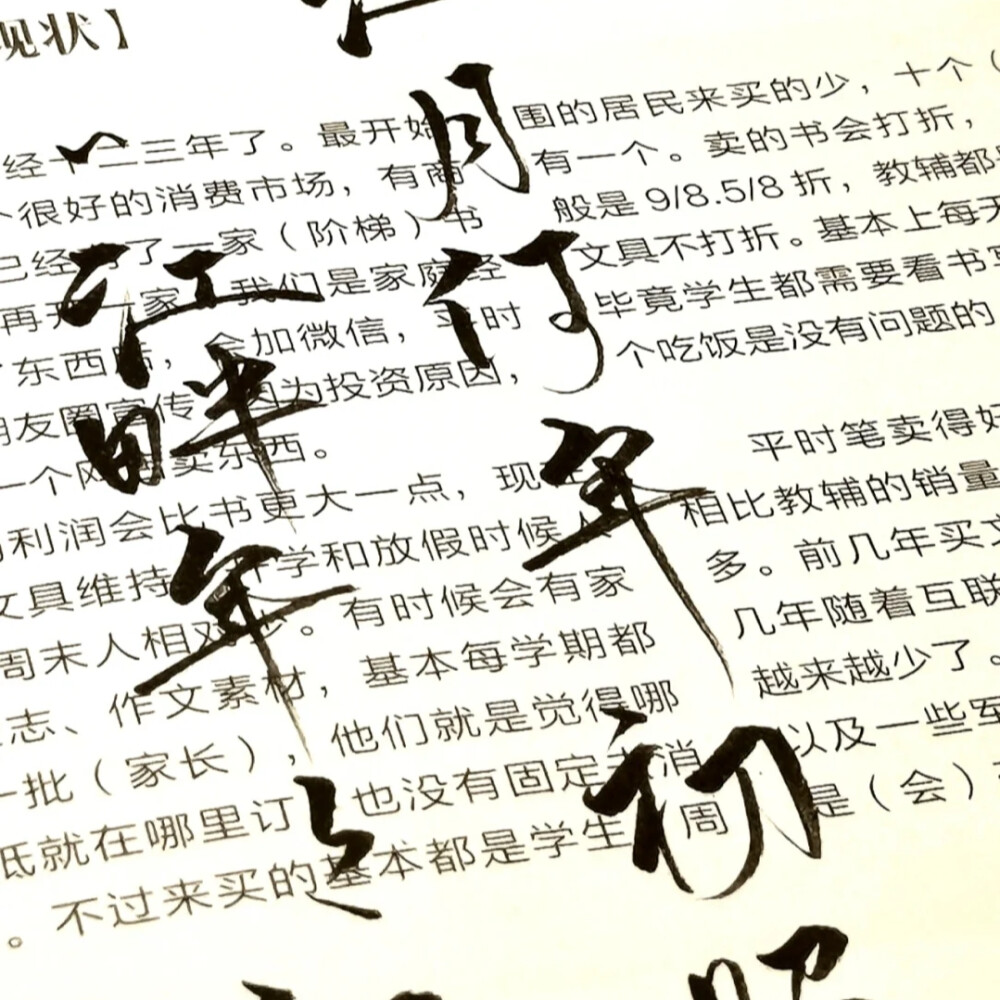 现状】
经十二三年了。最开始
个很好的消费市场，有商
已经了一家（阶梯）书
再开家我们是家庭经
东西啥，会加微信，平时
朋友圈宣传因为投资原因，
一个网卖东西。
利润会比书更大一点，现
文具维持开学和放假时候
周末人相对少。有时候会有家
志、作文素材，基本每学期都
一批（家长），他们就是觉得哪
低就在哪里订也没有固定消
。不过来买的基本都是学生周
围的居民来买的少，十个（
有一个。卖的书会打折，
般是9/8.5/8折，教辅都
文具不打折。基本上每天
毕竟学生都需要看书写
个吃饭是没有问题的
平时笔卖得好
相比教辅的销量
多。前几年买文
几年随着互联
越来越少了。
以及一些军
是（会）
江月何年初照
江畔年